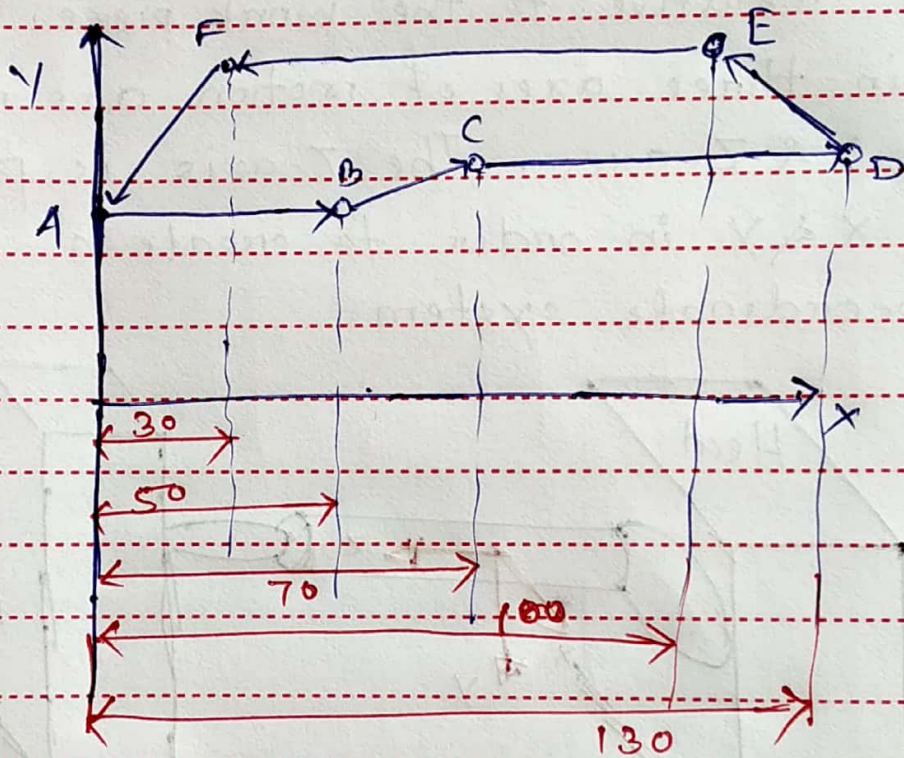 F
E
Y
C
B
D
A
X
30
50
70
100
130